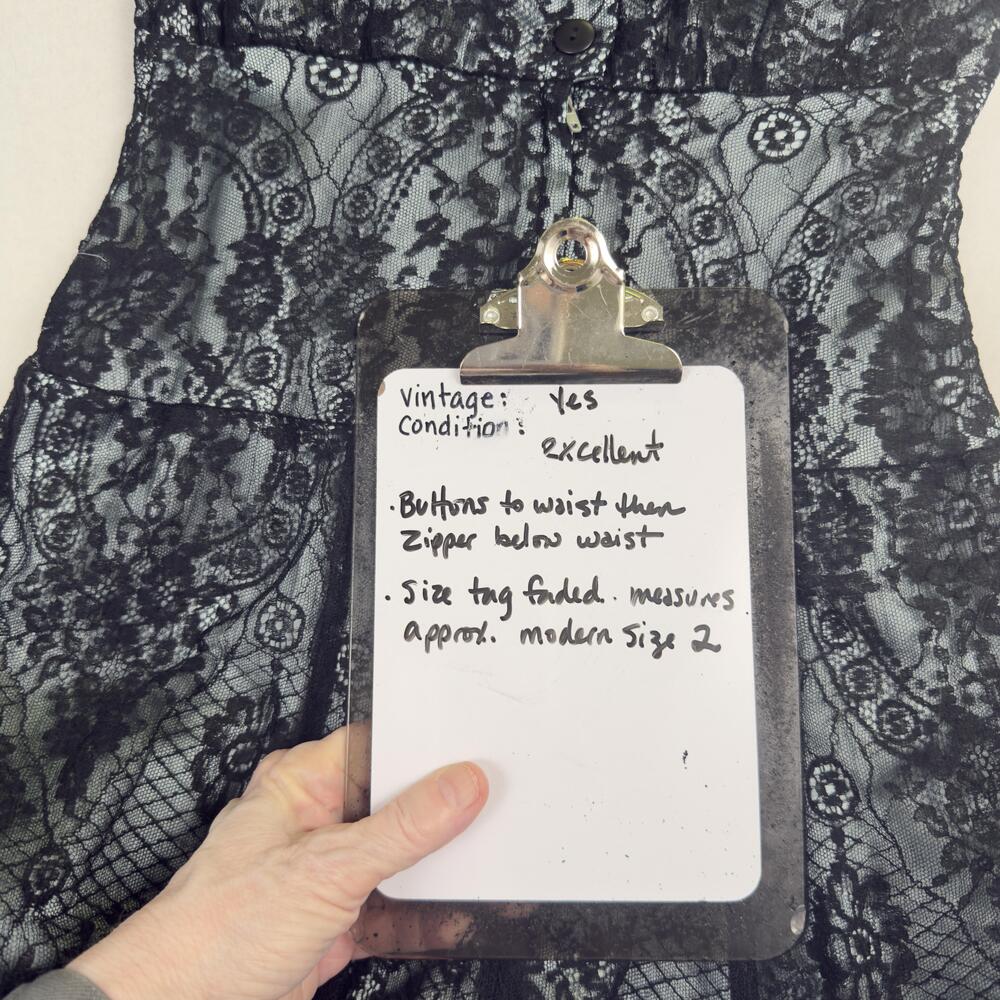 Vintage: Yes
Condition:
Excellent
• Buttons to waist then
Zipper below waist
• Size tag faded. measures
approx. modern size 2